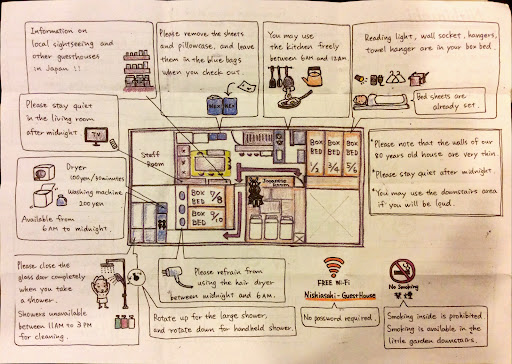 Information on
local sightseeing and
other guesthouses
in Japan !!
Please remove the sheets
and pillowcase, and leave
them in the blue bags
when you check out.
You may use
the kitchen freely
between 6 AM and 12 AM.
Reading light, wall socket, hangers,
towel hanger are in your box bed.
Bed sheets are
already set.
Please stay quiet
in the living room
after midnight.
TV
Dryer
100 yen/30 minutes
Washing machine
200 yen
Available from
6 AM to midnight.
Staff
Room
Japanese
Room
BOX
BED
1/2
BOX
BED
3/4
BOX
BED
5/6
BOX
BED
7/8
BOX
BED
9/10
*Please note that the walls of our
80 years old house are very thin.
*Please stay quiet after midnight.
*You may use the downstairs area
if you will be loud.
Please close the
glass door completely
when you take
a shower.
Showers unavailable
between 11AM to 3 PM
for cleaning.
Please refrain from
using the hair dryer
between midnight and 6 AM.
Rotate up for the large shower,
and rotate down for handheld shower.
FREE Wi-Fi
Nishiasahi-GuestHouse
No password required.
No Smoking
禁煙
Smoking inside is prohibited
Smoking is available in the
little garden downstairs.